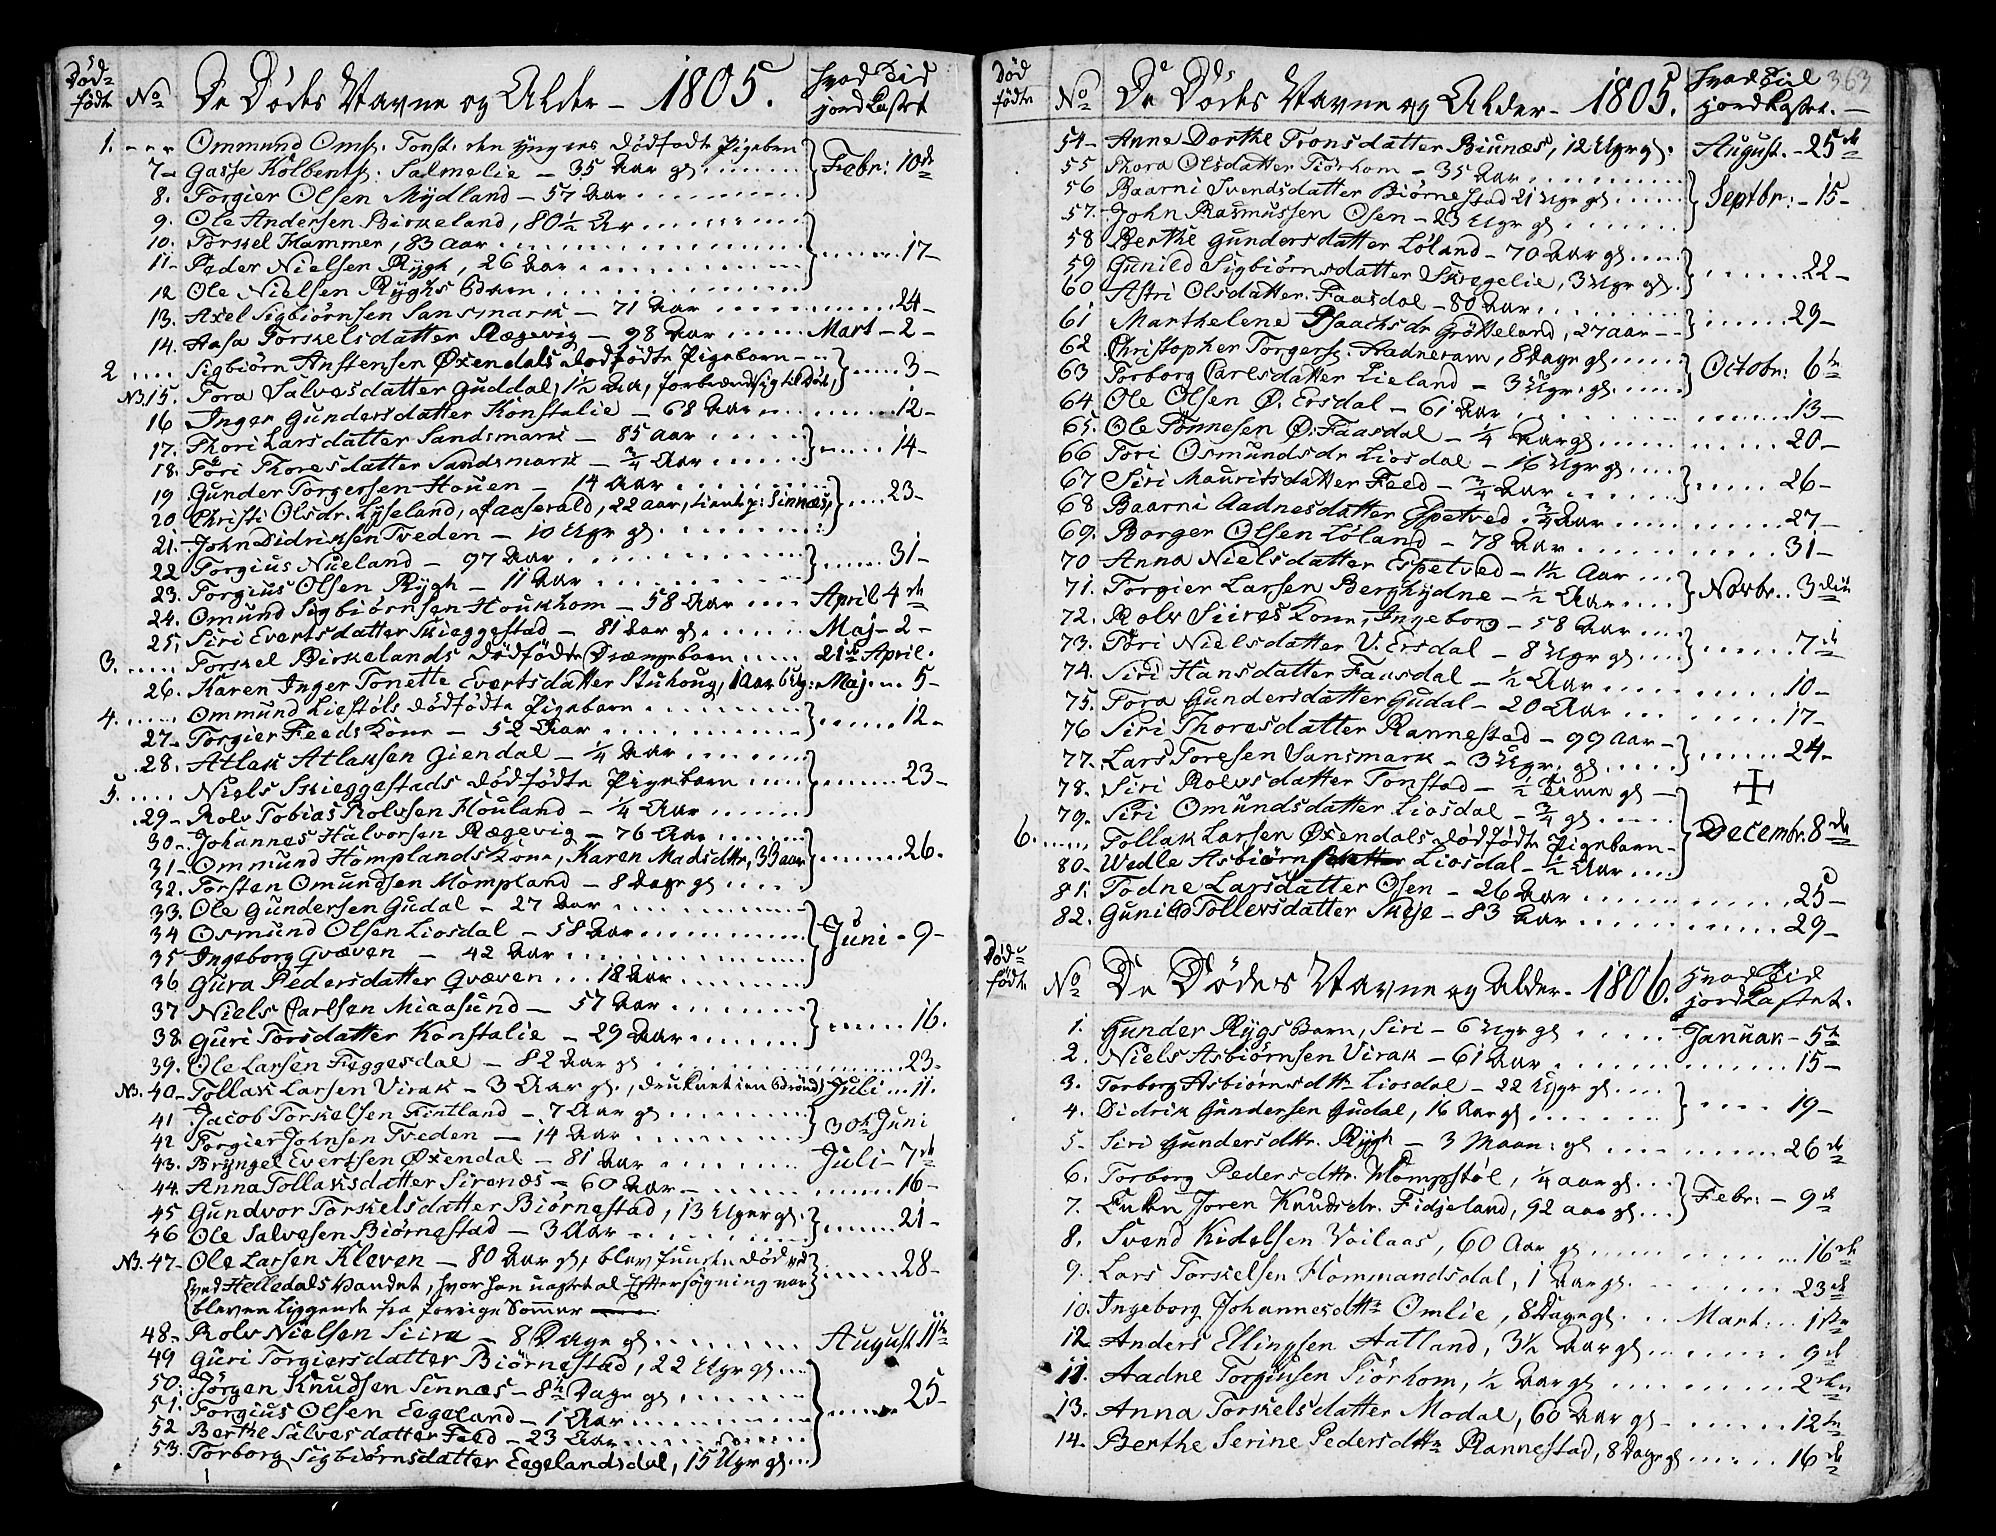 Död-
födte
No
De Dödes Navne og Alder - 1805.
Hvad Tid
jordkastet
1. - - - Ommund Oms: Tonst: den yngres dödfödte Pigebarn
7- Gasse Kolbents: Salmelie - 35 Aar gl. Febr: 10de
8. Torgier Olsen Mydland - 57 Aar
9. Ole Andersen Birkeland, 80 1/2 Ar
10. Torkel Hammer, 83 Aar
11- Peder Nielsen Rygh, 26 Aar 17-
12 Ole Nielsen Ryghs Barn
13. Axel Sigbiörnsen Sansmark - 71 Aar 24-
14. Aasa Torkelsdatter Rægevig - 98 Aar Mart - 2 -
2 Sigbiörn Anstensen Öxendals dödfödte Pigebarn -
NB. 15. Tora Salvesdatter Guddal, 1 1/2 Aar, forbrændt sig til Död, 3-
16 Inger Gundersdatter Konstalie - 68 Aar 12-
17. Thori Larsdatter Sandsmark - 85 Aar
18. Töri Thoresdatter Sandsmark - 3/4 Aar 14-
19 Gunder Torgersen Houen - 14 Aar
20. Christi Olsdr. Lyseland, 22 Aar, Sinnæs, 23-
21. John Didriksen Tveden - 10 Uger gl
22 Torgius Nueland - 97 Aar 31-
23. Torgius Olsen Rygh - 11 Aar
24. Omund Sigbiörnsen Houkhom - 58 Aar April 4de
25, Siri Evertsdatter Skieggestad - 81 Aar gl. Maj - 2 -
3. Torkel Birkelands dödfödte Drængebarn 21de April.
26. Karen Inger Tonette Evertsdatter Stuhoug, 1 Aar 6 Ug: Maj 5-
4. Ommund Liestöls dödfödte Pigebarn
27- Torgier Feeds Kone - 52 Aar 12-
28. Atlak Atlaksen Giendal - 1/4 Aar
5. Niels Skieggestads dödfödte Pigebarn 23-
29- Rolv Tobias Rolvsen Houland - 1/4 Aar
30- Johannes Halvorsen Rægevig - 76 Aar
31- Ommund Homplands Kone, Karen Madsdttr, 33 Aar 26.
32. Torsten Omundsen Mompland - 8 Dage gl
33. Ole Gundersen Gudal - 27 Aar
34 Osmund Olsen Liosdal - 58 Aar
35 Ingeborg Qvæven - 42 Aar Juni - 9-
36 Gura Pedersdatter Qvæven 18 Aar
37 Niels Carlsen Miaasund - 57 Aar
38. Guri Torsdatter Konstalie - 29 Aar 16.
39. Ole Larsen Feggesdal - 82 Aar gl 23.
NB. 40- Tollak Larsen Virak - 3 Aar gl., druknet i en Brönd Juli 11.
41 Jacob Torkelsen Fintland - 7 Aar gl
42 Torgier Johnsen Tveden - 14 Aar 30te Juni
43. Bryngel Evertsen Öxendal - 81 Aar Juli - 7de
44. Anna Tollaksdatter Sirenæs - 60 Aar 16-
45 Gundvor Torkelsdatter Biörnestad, 13 Uger gl.
46 Ole Salvesen Biörnestad - 3 Aar 21-
NB. 47- Ole Larsen Kleven - 80 Aar gl, blev funden död
ved Helledals Vandet, hvor han uagtet al Eftersögning var 28-
bleven liggende fra forrige Sommer
48- Rolv Nielsen Siira - 8 Dage gl August 11te
49 Guri Torgiersdatter Biörnestad, 22 Uger gl
50. Jörgen Knudsen Sinnæs - 8 1/2 Dage gl
51. Torgius Olsen Eegeland - 1 Aar 25-
52 Berthe Salvesdatter Feed - 23 Aar
53. Torborg Sigbiörnsdatter Eegelandsdal, 15 Uger gl
363
Död
födte
No
De Dödes Navne og Alder - 1805.
Hvad Tid
jordkastet.
54- Anne Dorthe Tronsdatter Biunæs, 12 Uger gl. August. - 25de
55 Thora Olsdatter Tiörhom - 35 Aar
56 Baarni Svendsdatter Biörnestad 21 Uger gl Septbr: - 15-
57. John Rasmussen Osen - 23 Uger gl
58 Berthe Gundersdatter Löland - 70 Aar gl
59 Gunild Sigbiörnsdatter Skregelie, 3 Uger gl. 22-
60 Astri Olsdatter Faasdal - 80 Aar
61 Marthelene Isaachsdr Grötteland, 27 Aar 29-
62 Christopher Torgers: Aadneram, 8 Dage gl
63 Torborg Carlsdatter Lieland - 3 Uger gl Octobr: 6te
64. Ole Olsen Ö. Ersdal - 61 Aar 13-
65. Ole Tönnesen Ö: Faasdal - 1/4 Aar gl 20-
66 Tori Osmundsdr Liosdal - 16 Uger gl
67 Siri Mauritsdatter Feed - 3/4 Aar 26-
68 Baarni Aadnesdatter Espetved - 3/4 Aar 27-
69. Borger Olsen Löland - 78 Aar 31-
70 Anna Nielsdatter Espetved - 1 1/2 Aar
71. Torgier Larsen Berghydne - 1/2 Aar Novbr. 3die
72. Rolv Siires Kone, Ingeborg - 58 Aar
73. Töri Nielsdatter V. Ersdal - 8 Uger gl 7de
74. Siri Hansdatter Faasdal - 1/2 Aar 10-
75. Tora Gundersdatter Gudal - 20 Aar 17-
76 Siri Thoresdatter Rannestad - 99 Aar
77. Lars Toresen Sansmark - 3 Uger gl 24-
78. Siri Rolvsdatter Tonstad - 1/2 Time gl -
79. Siri Omundsdatter Liosdal - 3/4 gl
6. Tollak Larsen Öxendals dödfödte Pigebarn - Decembr. 8de
80- Vedle Asbiörnsdatter Liosdal - 1/2 Aar
81. Todne Larsdatter Osen - 26 Aar 25-
82. Gunild Tollevsdatter Skeje - 83 Aar 29-
Död-
födte
No
De Dödes Navne og Alder - 1806.
Hvad Tid
jordkastet.
1. Gunder Rygs Barn, Siri - 6 Uger gl Januar - 5te
2. Niels Asbiörnsen Virak - 61 Aar 15-
3. Torborg Asbiörnsdttr Liosdal - 22 Uger gl
4. Didrik Gundersen Gudal, 16 Aar gl 19-
5- Siri Gundersdttr. Rygh - 3 Maan: gl 26de
6. Torborg Pedersdttr. Mompstöl, 1/4 Aar gl
7. Enken Joren Knudsdr. Fidjeland, 92 Aar gl Febr: - 9de
8. Svend Kidelsen Voilaas, 60 Aar gl 16de
9. Lars Torkelsen Hommandsdal, 1 Aar gl. 23de
10. Ingeborg Johannesdttr Omlie, 8 Dage gl. Mart: 1ste
12 Anders Ellingsen Aatland, 3 1/2 Aar gl 9de
11. Aadne Torgiusen Tiörhom, 1/2 Aar gl 2den
13. Anna Torkelsdatter Modal, 60 Aar gl - 12te
14. Berthe Serine Pedersdttr Rannestad, 8 Dage gl 16de